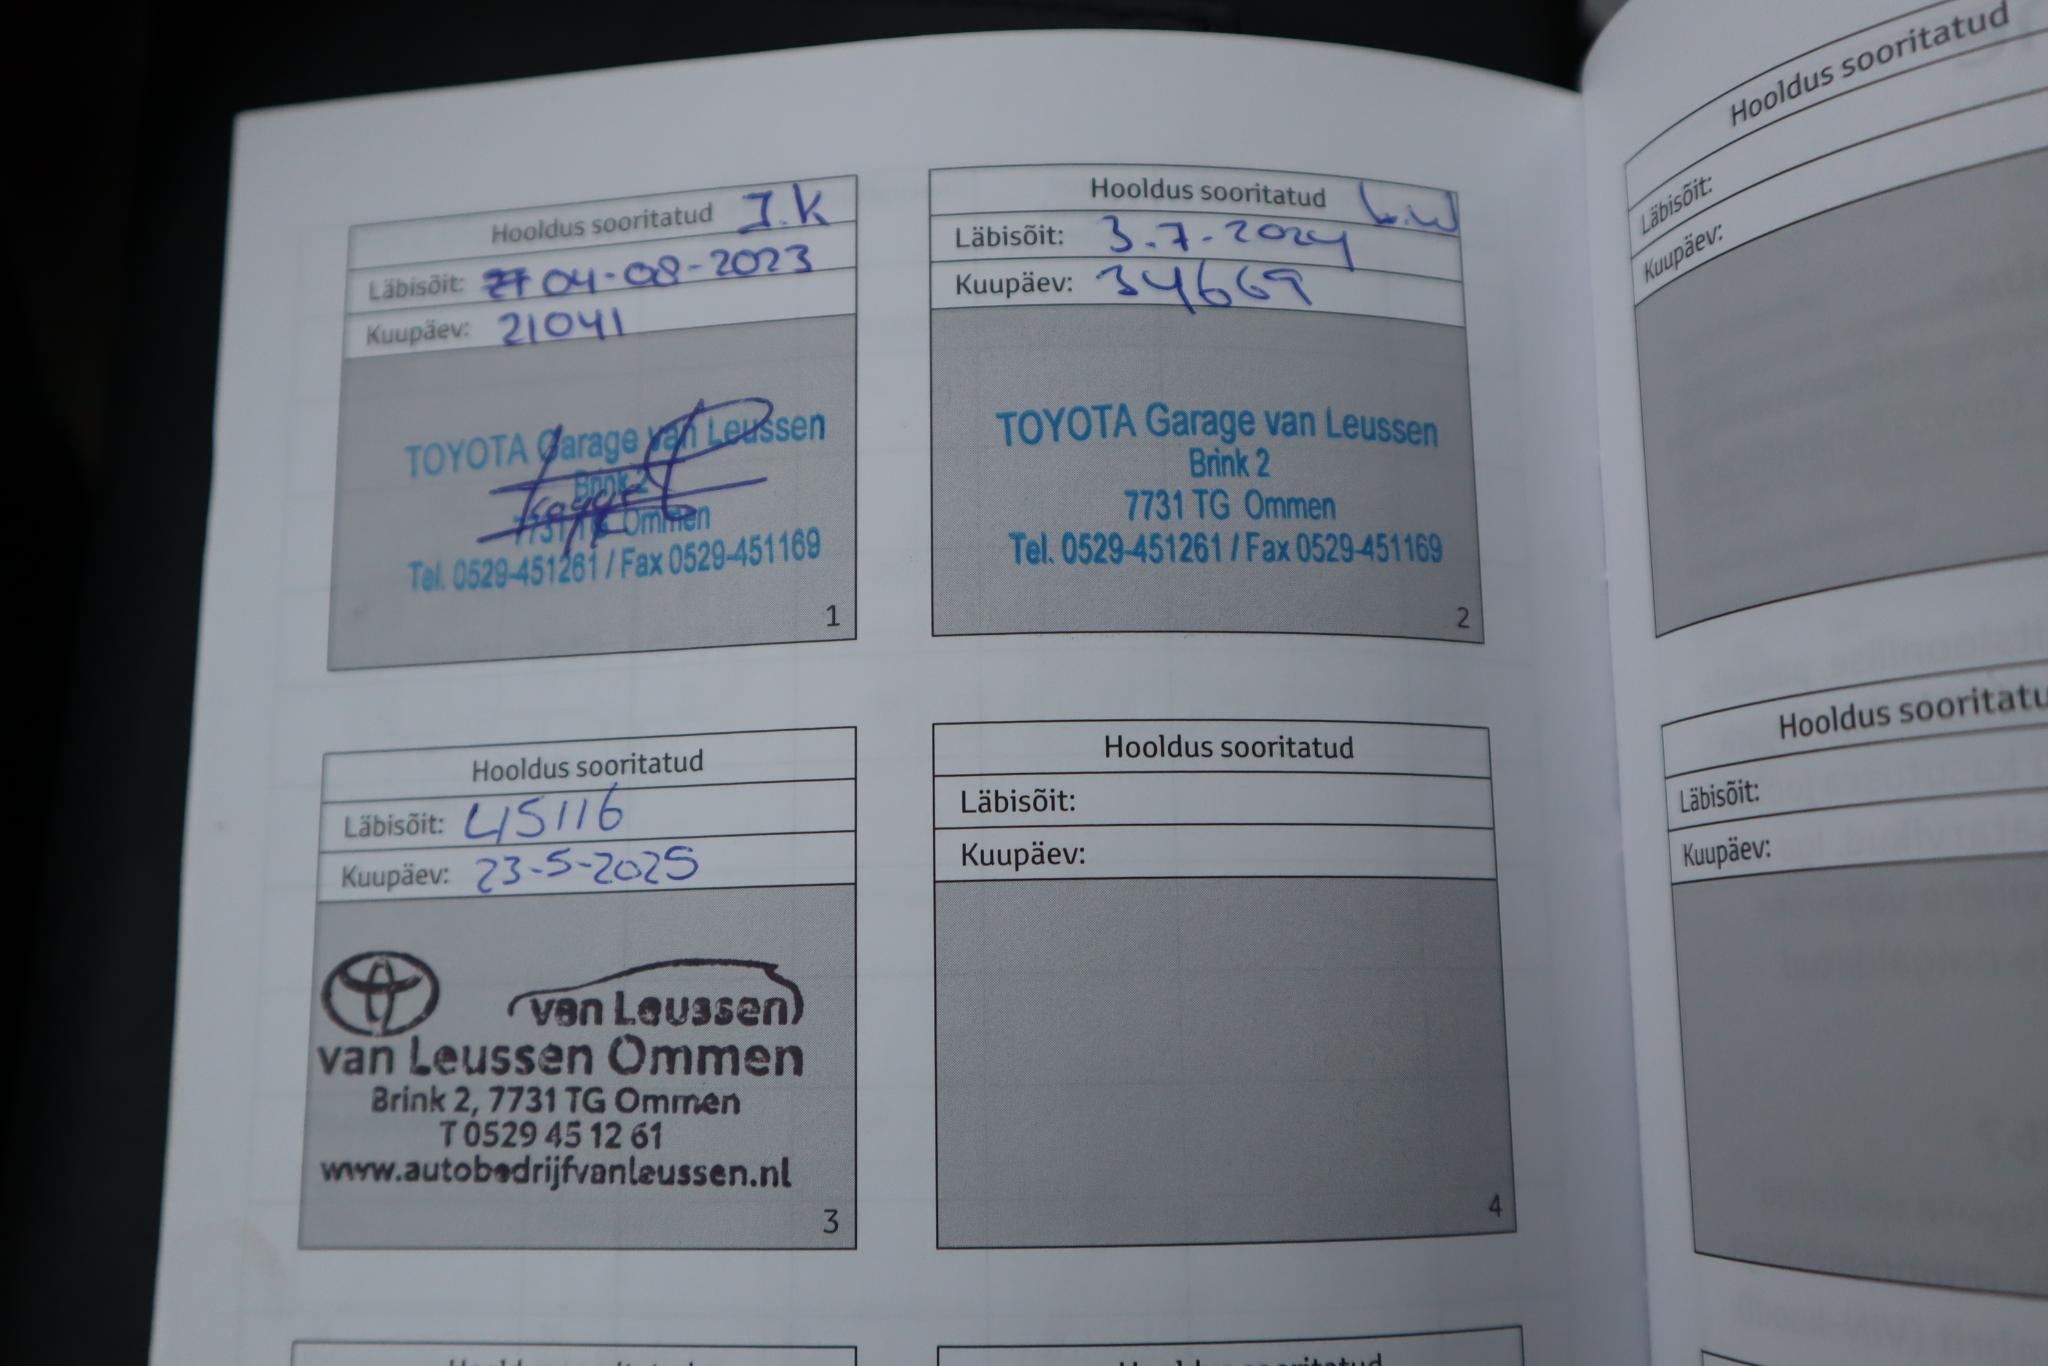 Hooldus sooritatud J.K
Läbisõit: 04-08-2023
Kuupäev: 21041
TOYOTA Garage van Leussen
Brink 2
7731 TG Ommen
Tel. 0529-451261 / Fax 0529-451169
1
Hooldus sooritatud L.W
Läbisõit: 3-7-2024
Kuupäev: 34669
TOYOTA Garage van Leussen
Brink 2
7731 TG Ommen
Tel. 0529-451261 / Fax 0529-451169
2
Hooldus sooritatud
Läbisõit: 45116
Kuupäev: 23-5-2025
van Leussen
van Leussen Ommen
Brink 2, 7731 TG Ommen
T 0529 45 12 61
www.autobedrijfvanleussen.nl
3
Hooldus sooritatud
Läbisõit:
Kuupäev:
4
Hooldus sooritatud
Hooldus sooritatud
Hooldus sooritatud
Läbisõit:
Kuupäev:
Hooldus sooritatu
Läbisõit:
Kuupäev: